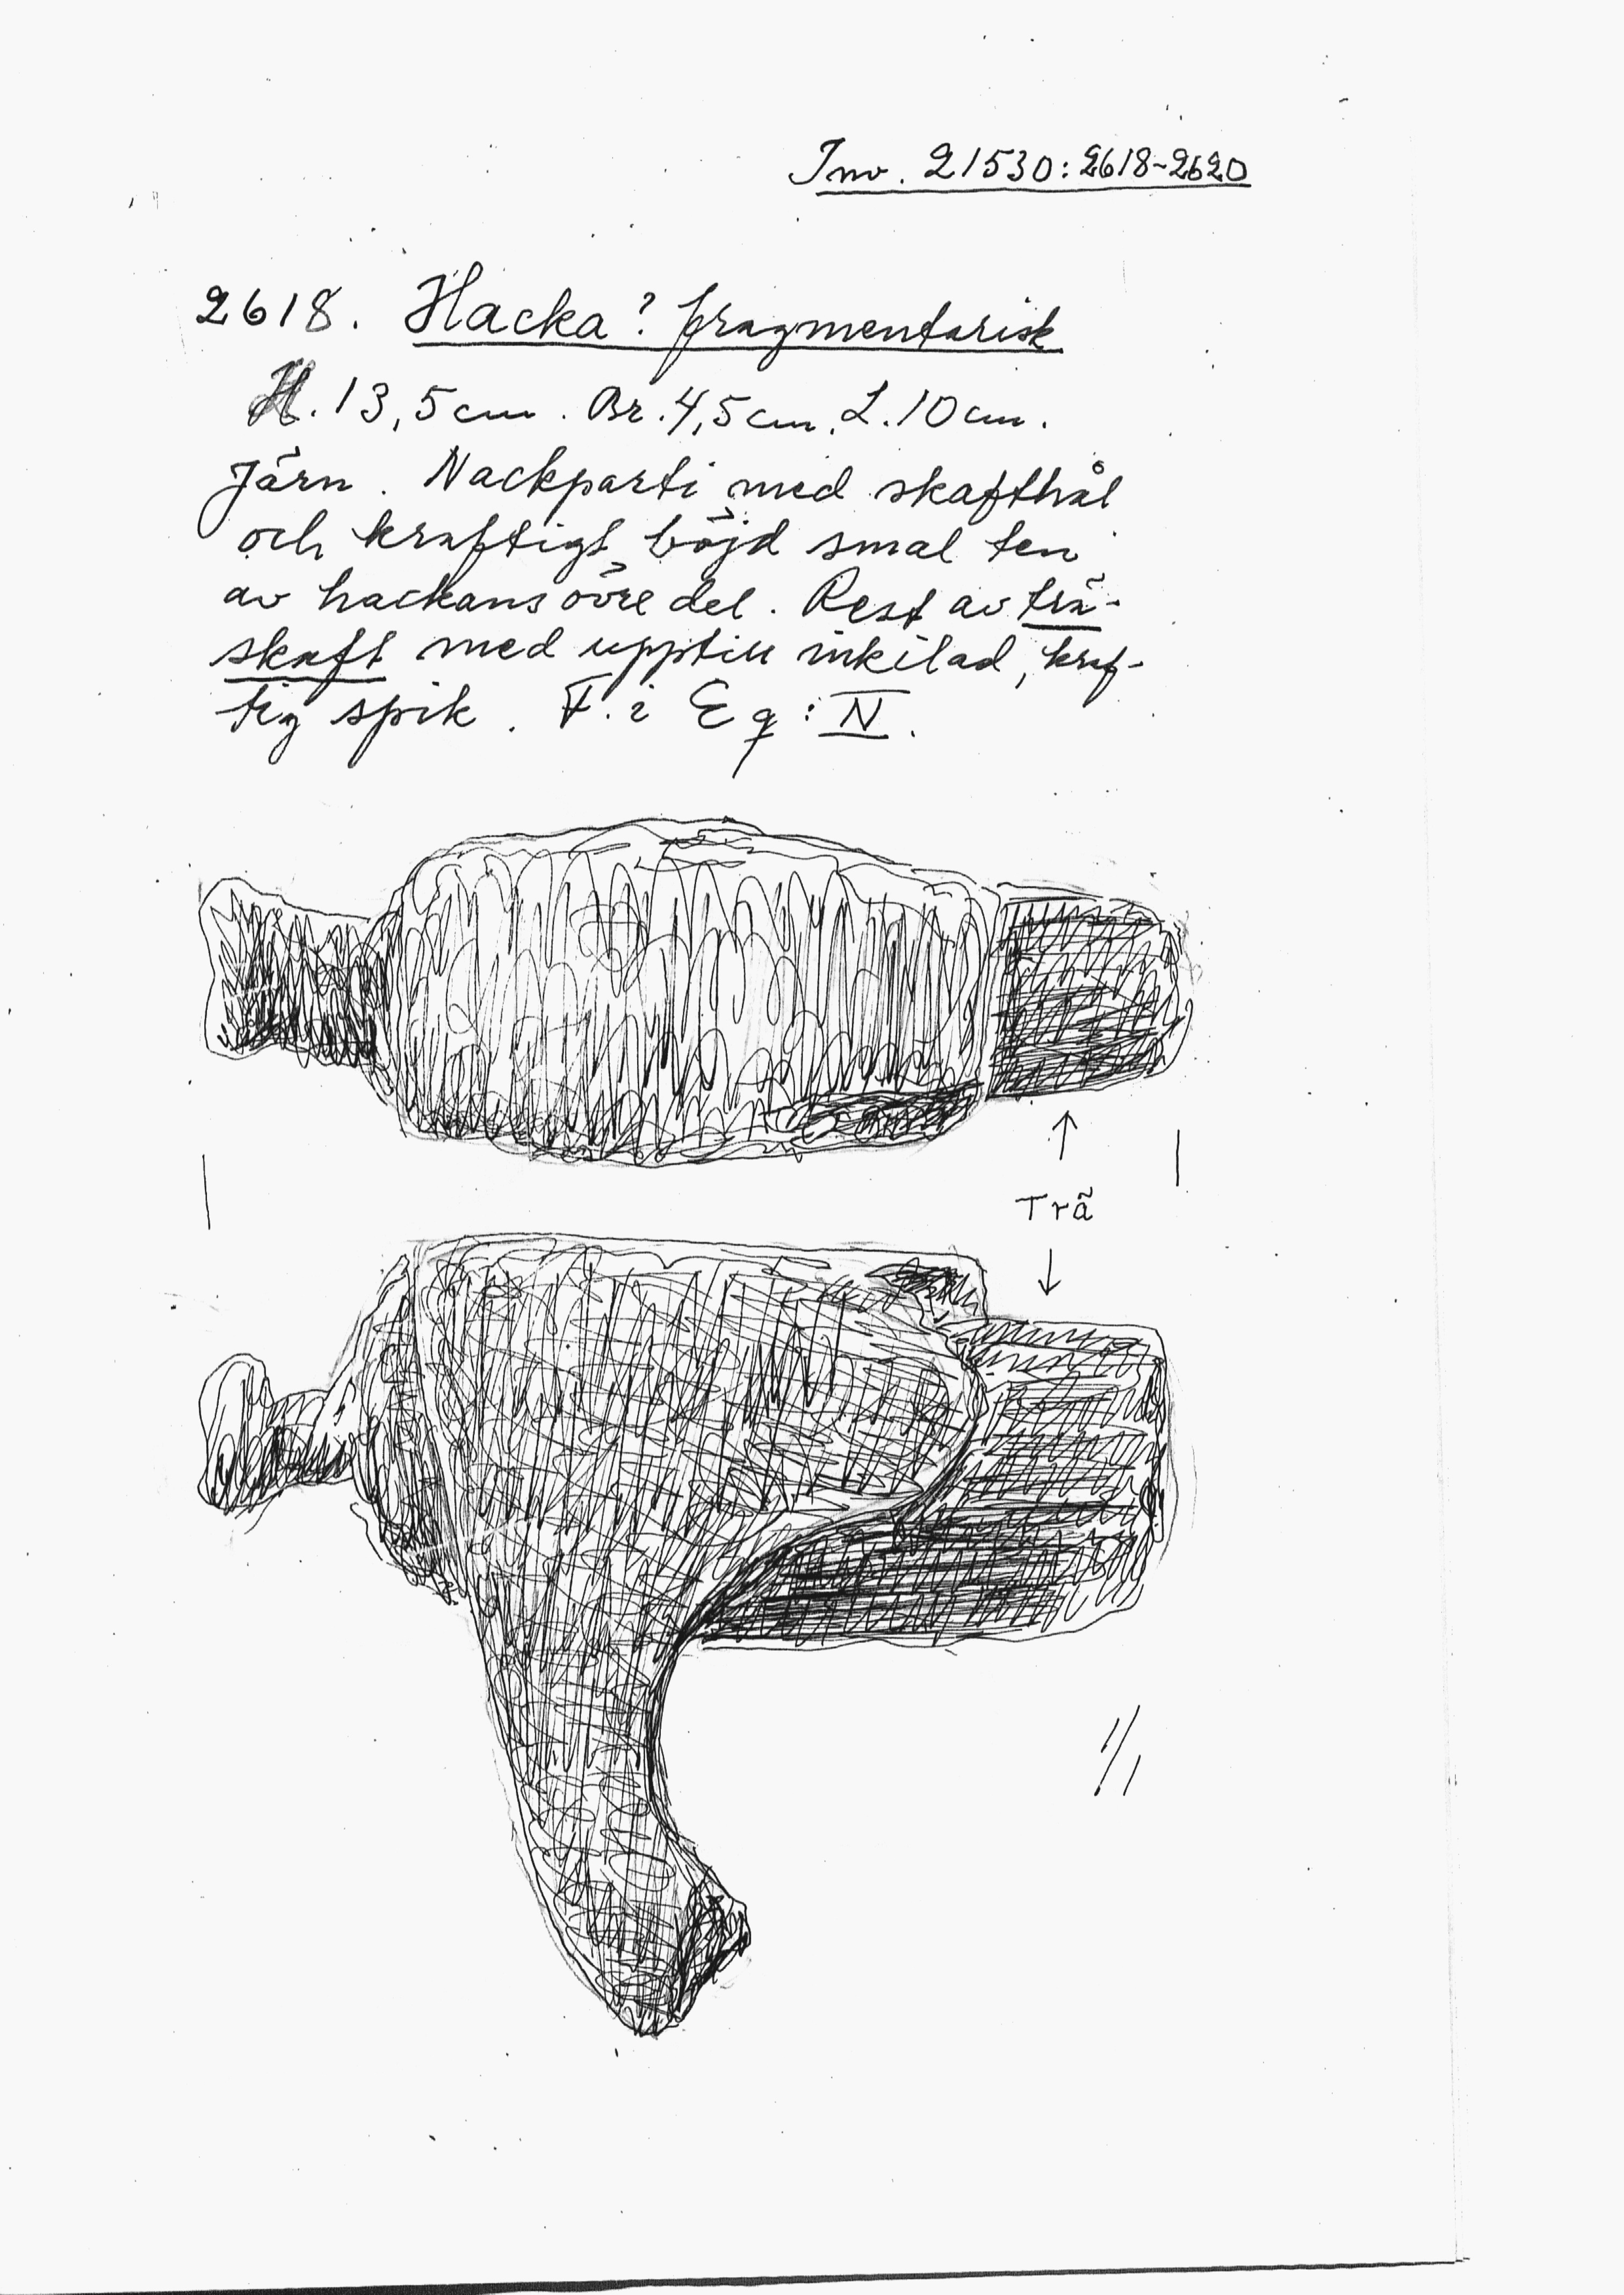 Inv. 21530:2618-2620
2618. Hacka? fragmentarisk
H. 13,5 cm. Br. 4,5 cm. L. 10 cm.
Järn. Nackparti med skafthål
och kraftigt böjd smal ten
av hackans övre del. Rest av trä-
skaft med upptill inkilad, kraf-
tig spik. F. i Eq: IV.
Trä
1/1